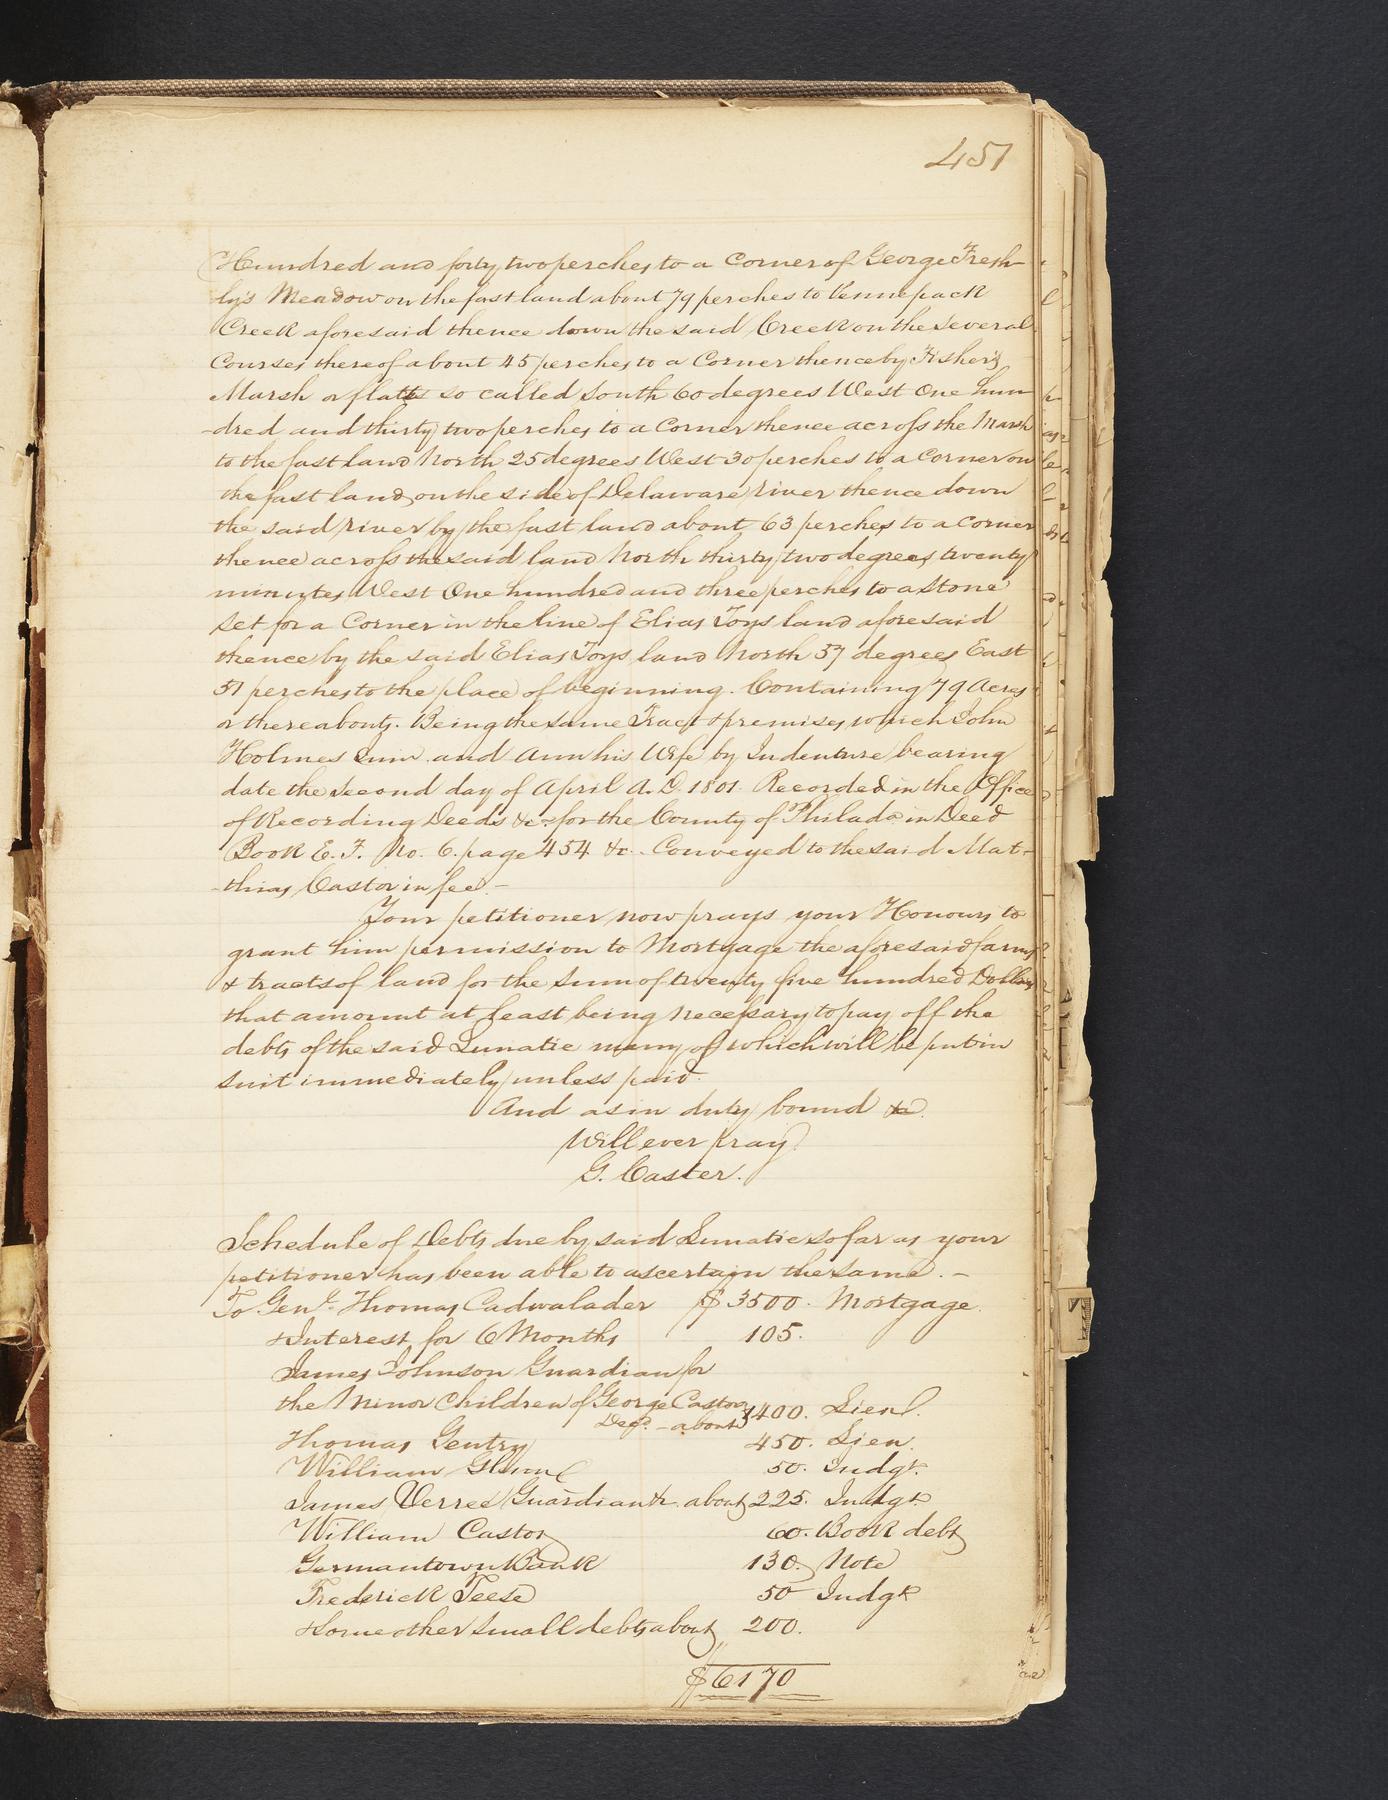 451
Hundred and forty two perches to a Corner of George Fresh-
ly's Meadow on the fast land about 79 perches to Pennepack
Creek aforesaid thence down the said Creek on the several
Courses thereof about 45 perches to a Corner thence by Fisher's
Marsh or flatts so called South 60 degrees West One hun
-dred and thirty two perches to a Corner thence across the Marsh
to the fast land North 25 degrees West 30 perches to a Corner on
the fast land on the side of Delaware river thence down
the said river by the fast land about 63 perches to a corner
thence across the said land North thirty two degrees twenty
minutes West One hundred and three perches to a Stone
set for a Corner in the line of Elias Toys land aforesaid
thence by the said Elias Toys land North 57 degrees East
51 perches to the place of beginning. Containing 79 Acres
or thereabouts. Being the same Tract & premises which John
Holmes and Ann his Wife by Indenture bearing
date the Second day of April A. D. 1801. Recorded in the Office
of Recording Deeds &c. for the County of Philada in Deed
Book E. F. No. 6. page 454 &c. Conveyed to the said Mat-
-thias Castor in fee.-
Your petitioner now prays your Honours to
grant him permission to Mortgage the aforesaid farms
& tracts of land for the sum of twenty five hundred Dollars
that amount at least being necessary to pay off the
debts of the said Lunatic many of which will be put in
suit immediately unless paid.
And as in duty bound &c.
Will ever pray
G. Caster.
Schedule of Debts due by said Lunatic so far as your
petitioner has been able to ascertain the same. -
To Genl. Thomas Cadwalader $ 3500. Mortgage
Interest for 6 Months 105.
James Johnson Guardian for
the Minor Children of George Castor
Decd. - about 1400. Lien.
Thomas Gentry 450. Lien.
William 50. Judgt.
James Verree Guardian &c. about 225. Judgt.
William Castor 60. Book debt
Germantown Bank 130. Note
Frederick Teese 50 Judgt
Some other small debts about 200.
$6170